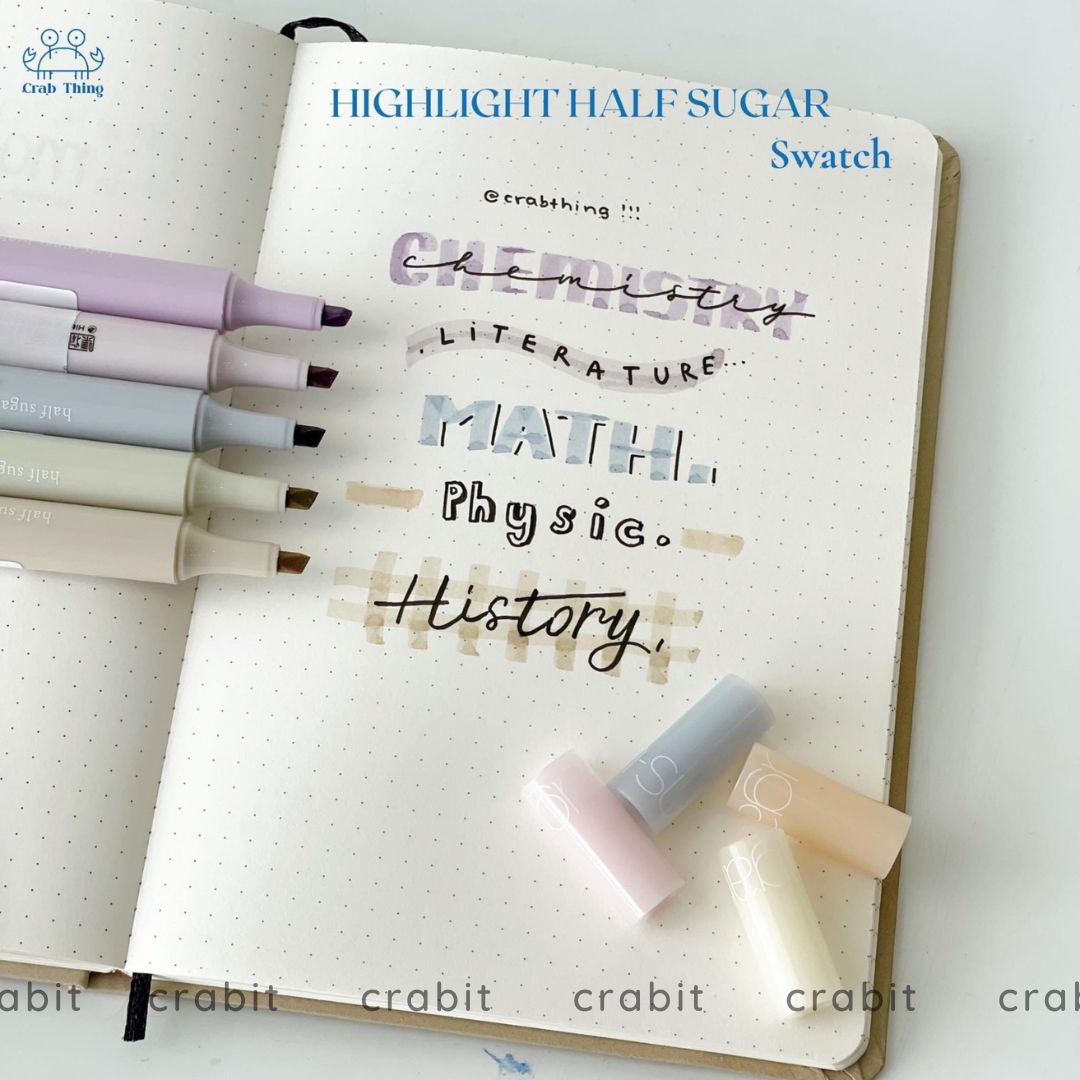 Crab Thing
HIGHLIGHT HALF SUGAR
Swatch
@crabthing !!!
CHEMISTRY
chemistry
.LiTERATURE...
MATH.
Physic.
History,
half sugar
half sugar
half sugar
crabit crabit crabit crabit